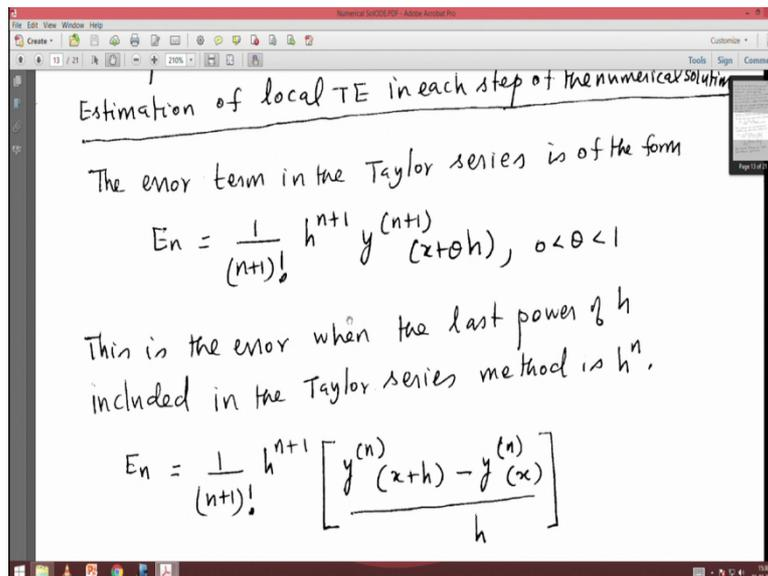 Numerical SolODE.PDF - Adobe Acrobat Pro
File Edit View Window Help
Create
Customize
13 / 21
210%
Tools Sign Comme
Estimation of local TE in each step of the numerical solution
The error term in the Taylor series is of the form
En = 1/(n+1)! h^{n+1} y^{(n+1)}(x+θh), 0<θ<1
This is the error when the last power of h
included in the Taylor series method is h^n.
En = 1/(n+1)! h^{n+1} [ (y^{(n)}(x+h) - y^{(n)}(x)) / h ]
Page 13 of 21